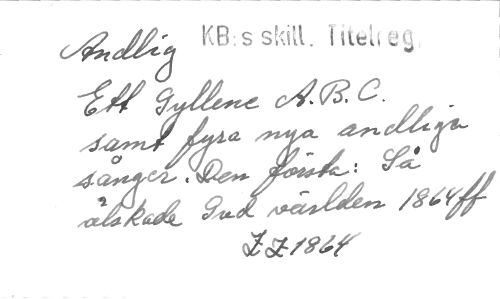 Andlig KB:s skill. Titelreg.
Ett Gyllene A.B.C.
samt fyra nya andliga
sånger. Den första: Så
älskade Gud världen 1864 ff
1864